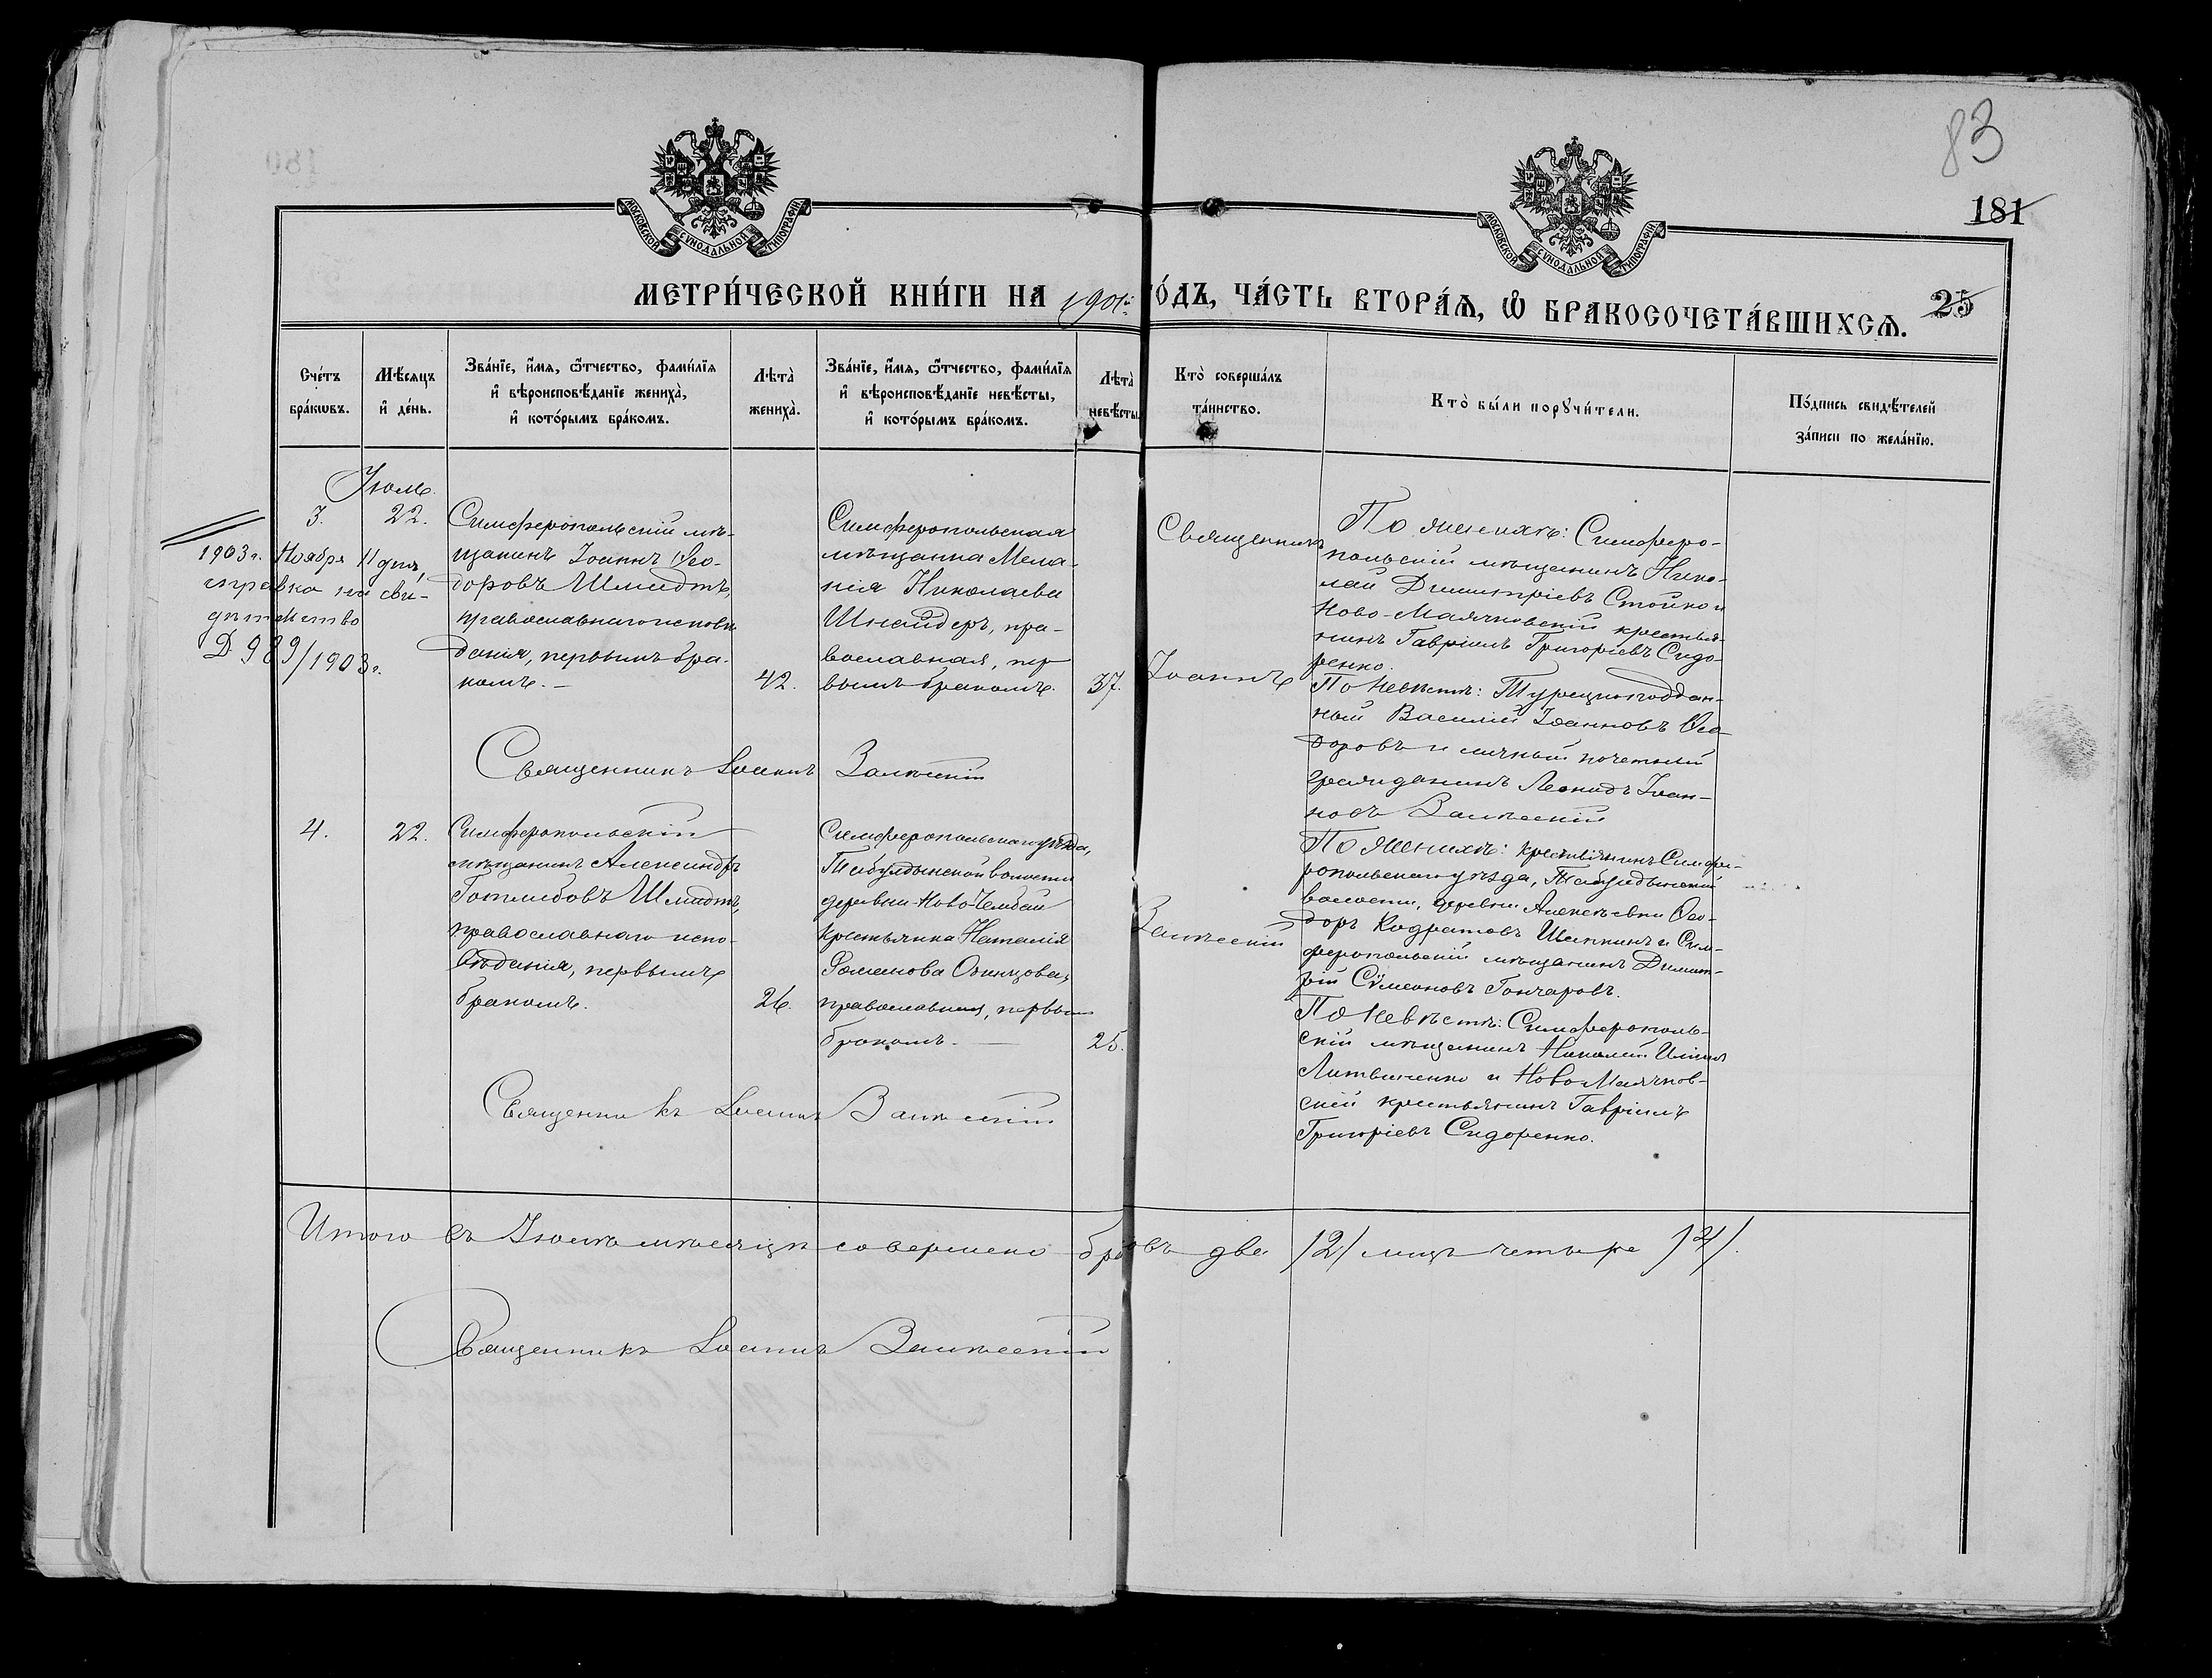 83
181
МОСКОВСКОЙ СѴНОДАЛЬНОЙ ТИПОГРАФІИ
МОСКОВСКОЙ СѴНОДАЛЬНОЙ ТИПОГРАФІИ
МЕТРИ́ЧЕСКОЙ КНИ́ГИ НА 1901й О́ДЪ, ЧА́СТЬ ВТОРА́Ѧ, Ѽ БРАКОСОЧЕТА́ВШИХСѦ.
25
Сче́тъ
бра́кѡвъ.
Мѣ́сяцъ
и҆ де́нь.
Зва́нїе, и҆́мя, ѻ҆́тчество, фами́лїя
и҆ вѣроисповѣ́данїе жениха̀,
и҆ кото́рымъ бра́комъ.
Лѣта̀
жениха̀.
Зва́нїе, и҆́мя, ѻ҆́тчество, фами́лїя
и҆ вѣроисповѣ́данїе невѣ́сты,
и҆ кото́рымъ бра́комъ.
Лѣта̀
невѣ́сты
Кто̀ соверша́лъ
та́инство.
Кто̀ бы́ли порꙋчи́тели.
По́дпись свидѣ́телей
за́писи по жела́нїю.
Іюль.
3.
22.
1903 г. Ноября 11 дня,
справка на сви-
дѣтельство
Д 989/1903 г.
Симферопольскій мѣ-
щанинъ Іоаннъ Ѳео-
доровъ Шмидтъ,
православнаго исповѣ
данія, первымъ бра-
комъ. —
42.
Симферопольская
мѣщанка Мела-
нія Николаева
Шнайдеръ, пра-
вославная, пер
вымъ бракомъ.
37.
Священникъ
Іоаннъ
Залѣсскій
По женихѣ: Симферо-
польскій мѣщанинъ Нико-
лай Димитріевъ Стойко и
Ново-Маячковскій крестья-
нинъ Гавріилъ Григорієвъ Сидо-
ренко.
По невѣстѣ: Турецкоподдан-
ный Василій Іоанновъ Ѳео-
доровъ и личный почетный
гражданинъ Леонидъ Іоан-
новъ Залѣсскій
Священникъ Іоаннъ Залѣсскій
4.
22.
Симферопольскій
мѣщанинъ Александръ
Готлибовъ Шмидтъ,
православнаго испо-
вѣданія, первымъ
бракомъ.
26.
Симферопольскаго уѣзда,
Табулдынской волости
деревни Ново Чембай
крестьянка Наталія
Романова Одинцова,
православная, первым
бракомъ. —
25.
По женихѣ: крестьянинъ Симфе-
ропольскаго уѣзда, Табулдынской
волости, деревни Алексѣевки Ѳео-
доръ Кодратовъ Шапкинъ и Сим-
феропольскій мѣщанинъ Димит-
рій Сѵмеоновъ Гончаровъ.
По невѣстѣ: Симферополь-
скій мѣщанинъ Николай
Литвиненко и Ново Маячков-
скій крестьянинъ Гавріилъ
Григоріевъ Сидоренко.
Священникъ Іоаннъ Залѣсскій
Итого въ Іюлѣ мѣсяцѣ совершено бра овъ два /2/ лицъ четыре /4/.
Священникъ Іоаннъ Залѣсскій